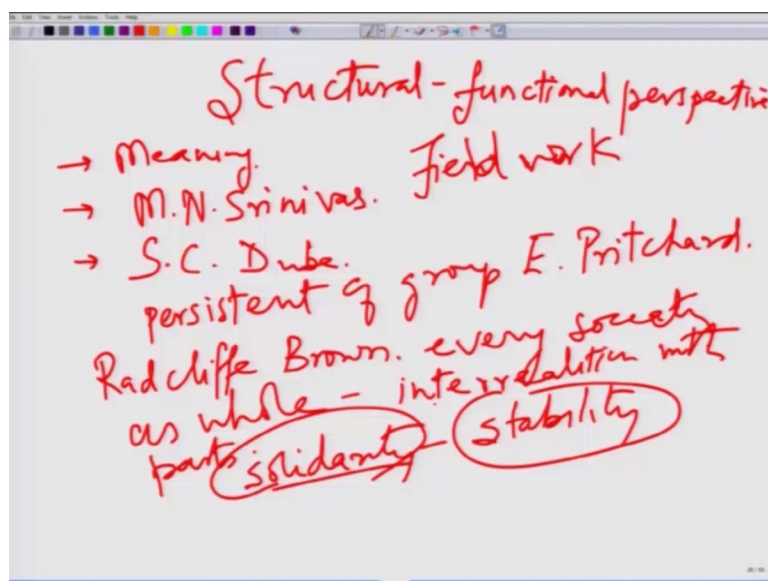 Structural-functional perspective
→ Meaning. Field work
→ M.N. Srinivas.
→ S.C. Dube.
persistent of group E. Pritchard.
Radcliffe Brown. every society
as whole - interrelalition with
parts solidarity - stability